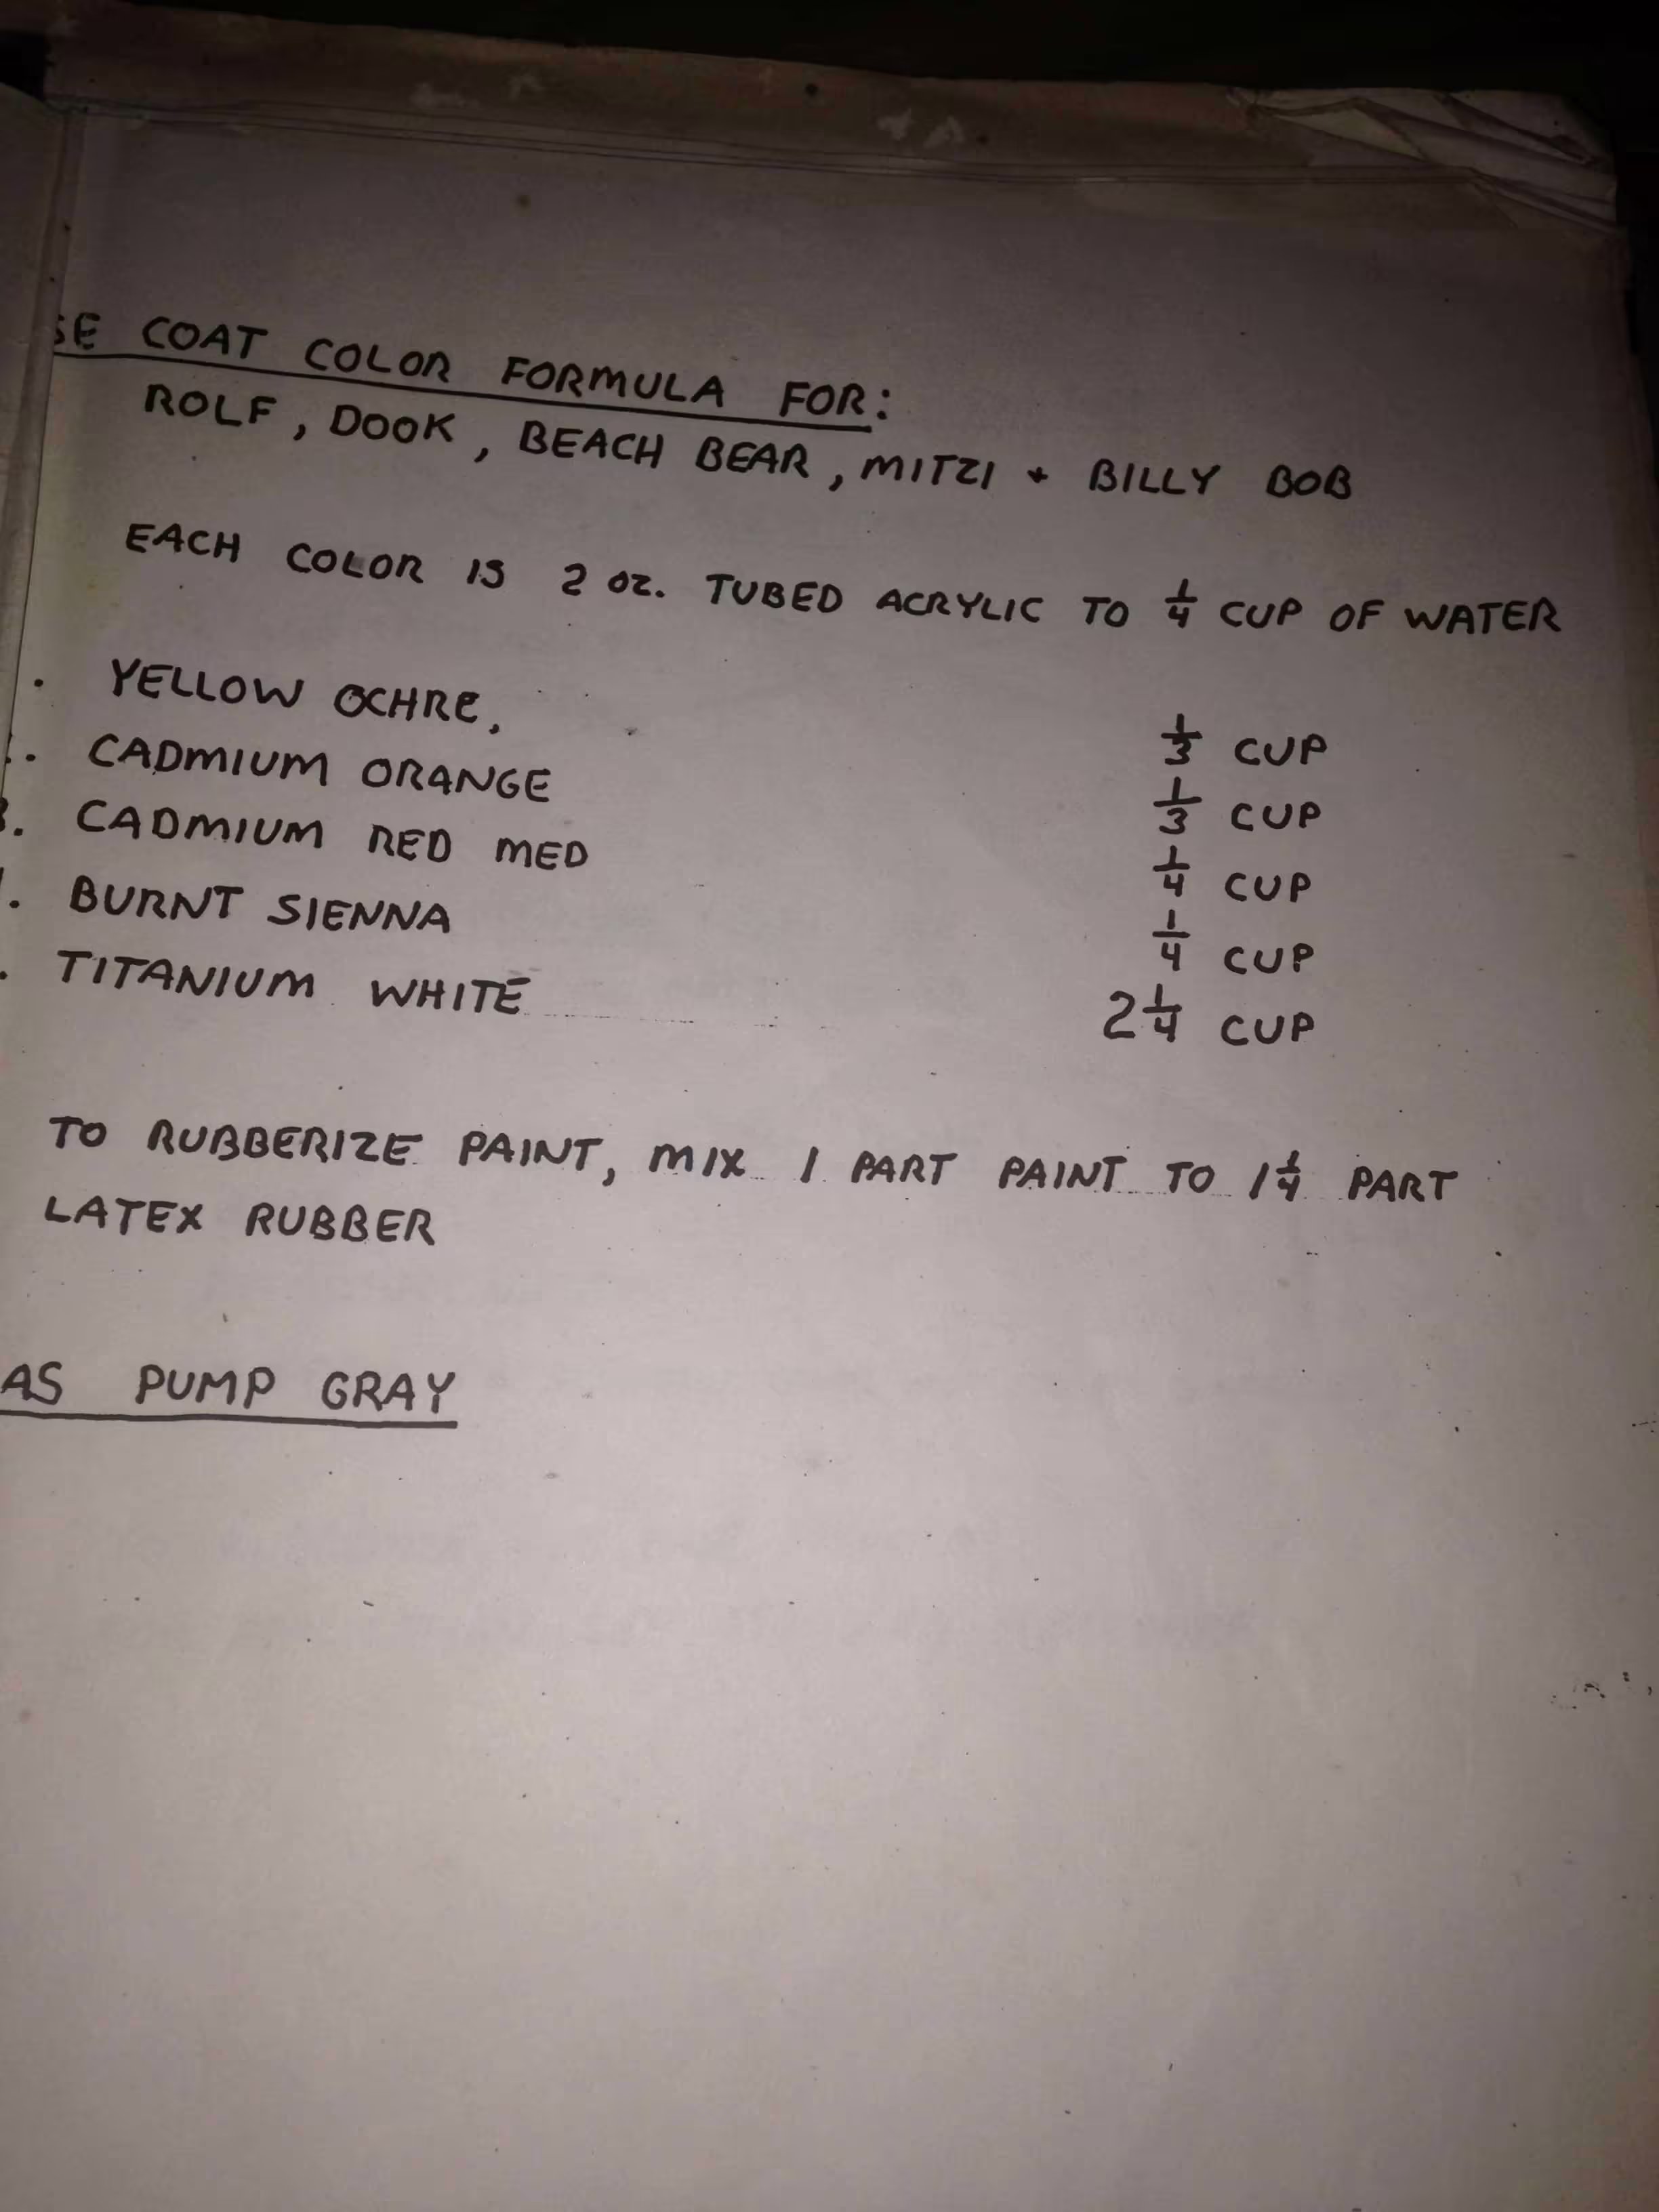 SE COAT COLOR FORMULA FOR:
ROLF, DOOK, BEACH BEAR, MITZI + BILLY BOB
EACH COLOR IS 2 OZ. TUBED ACRYLIC TO 1/4 CUP OF WATER
. YELLOW OCHRE, 1/3 CUP
. CADMIUM ORANGE 1/3 CUP
3. CADMIUM RED MED 1/4 CUP
. BURNT SIENNA 1/4 CUP
. TITANIUM WHITE 2 1/4 CUP
TO RUBBERIZE PAINT, MIX 1 PART PAINT TO 1 1/4 PART
LATEX RUBBER
AS PUMP GRAY